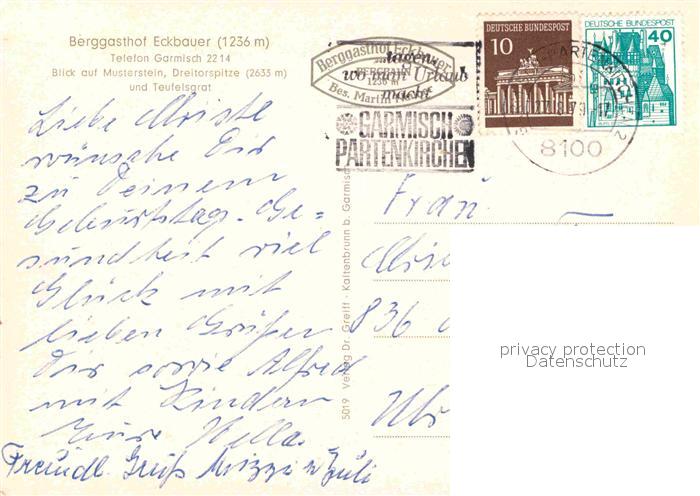 Berggasthof Eckbauer (1236 m)
Telefon Garmisch 2214
Blick auf Musterstein, Dreitorspitze (2633 m)
und Teufelsgrat
Berggasthof Eckbauer
1236 m
Bes. Martin
tagen,
wo man Urlaub
macht
GARMISCH
PARTENKIRCHEN
DEUTSCHE BUNDESPOST
10
DEUTSCHE BUNDESPOST
40
8100
Liebe Christe
wünsche Dir
zu Deinem
Geburtstag. Ge=
sundheit viel
Glück mit
lieben Grüßen
Dir sowie Alfred
mit Kindern
Eure Hella.
Freundl. Gruß Mizzi u Juli
5019 Verlag Dr. Greiff · Kaltenbrunn b. Garmisch
Frau
836
privacy protection
Datenschutz